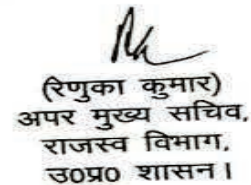 (रेणुका कुमार)
अपर मुख्य सचिव,
राजस्व विभाग,
उ०प्र० शासन।